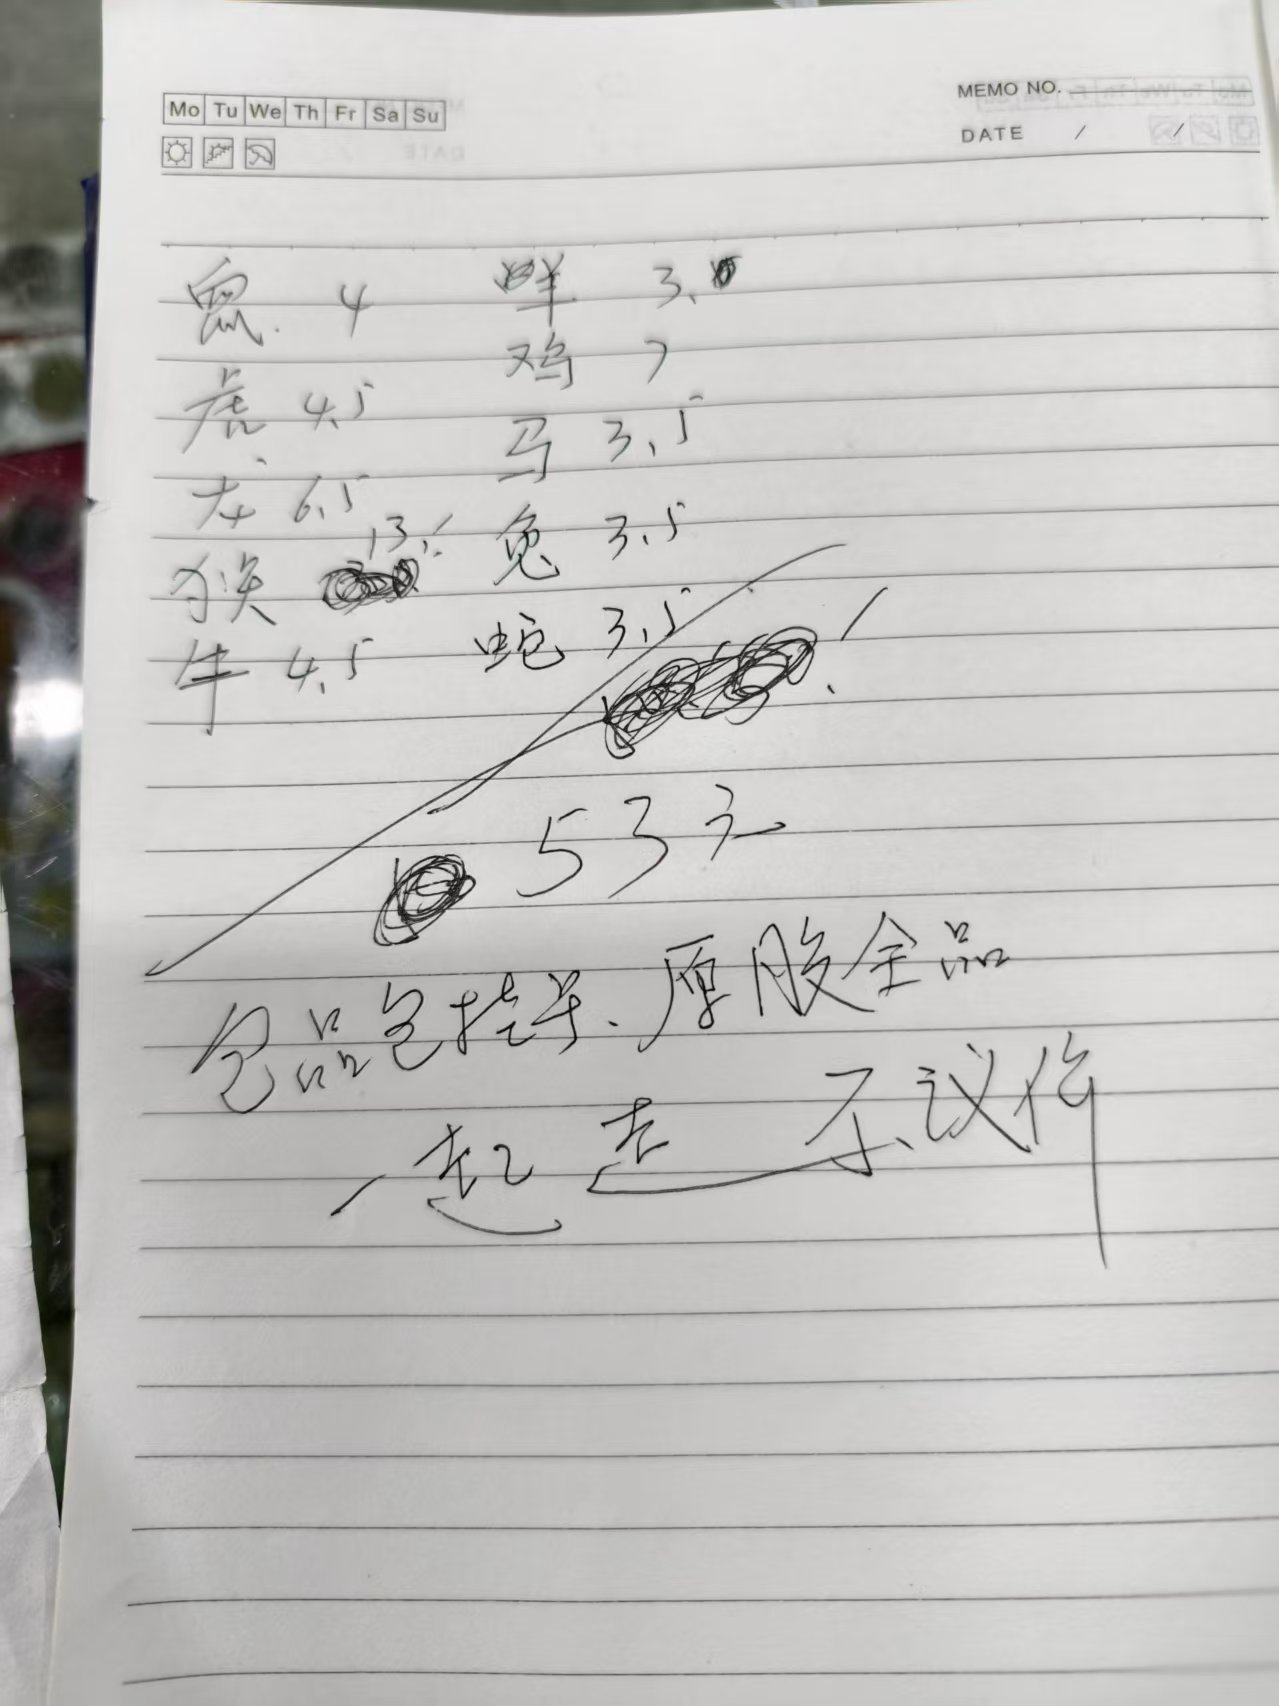 Mo Tu We Th Fr Sa Su
MEMO NO.
DATE / /
鼠. 4 羊 3.
虎 4.5 鸡 7
龙 6.5 马 3.5
猴 13. 兔 3.5
牛 4.5 蛇 3.5
53元
包品包挂号、原胶全品
一起走 不议价